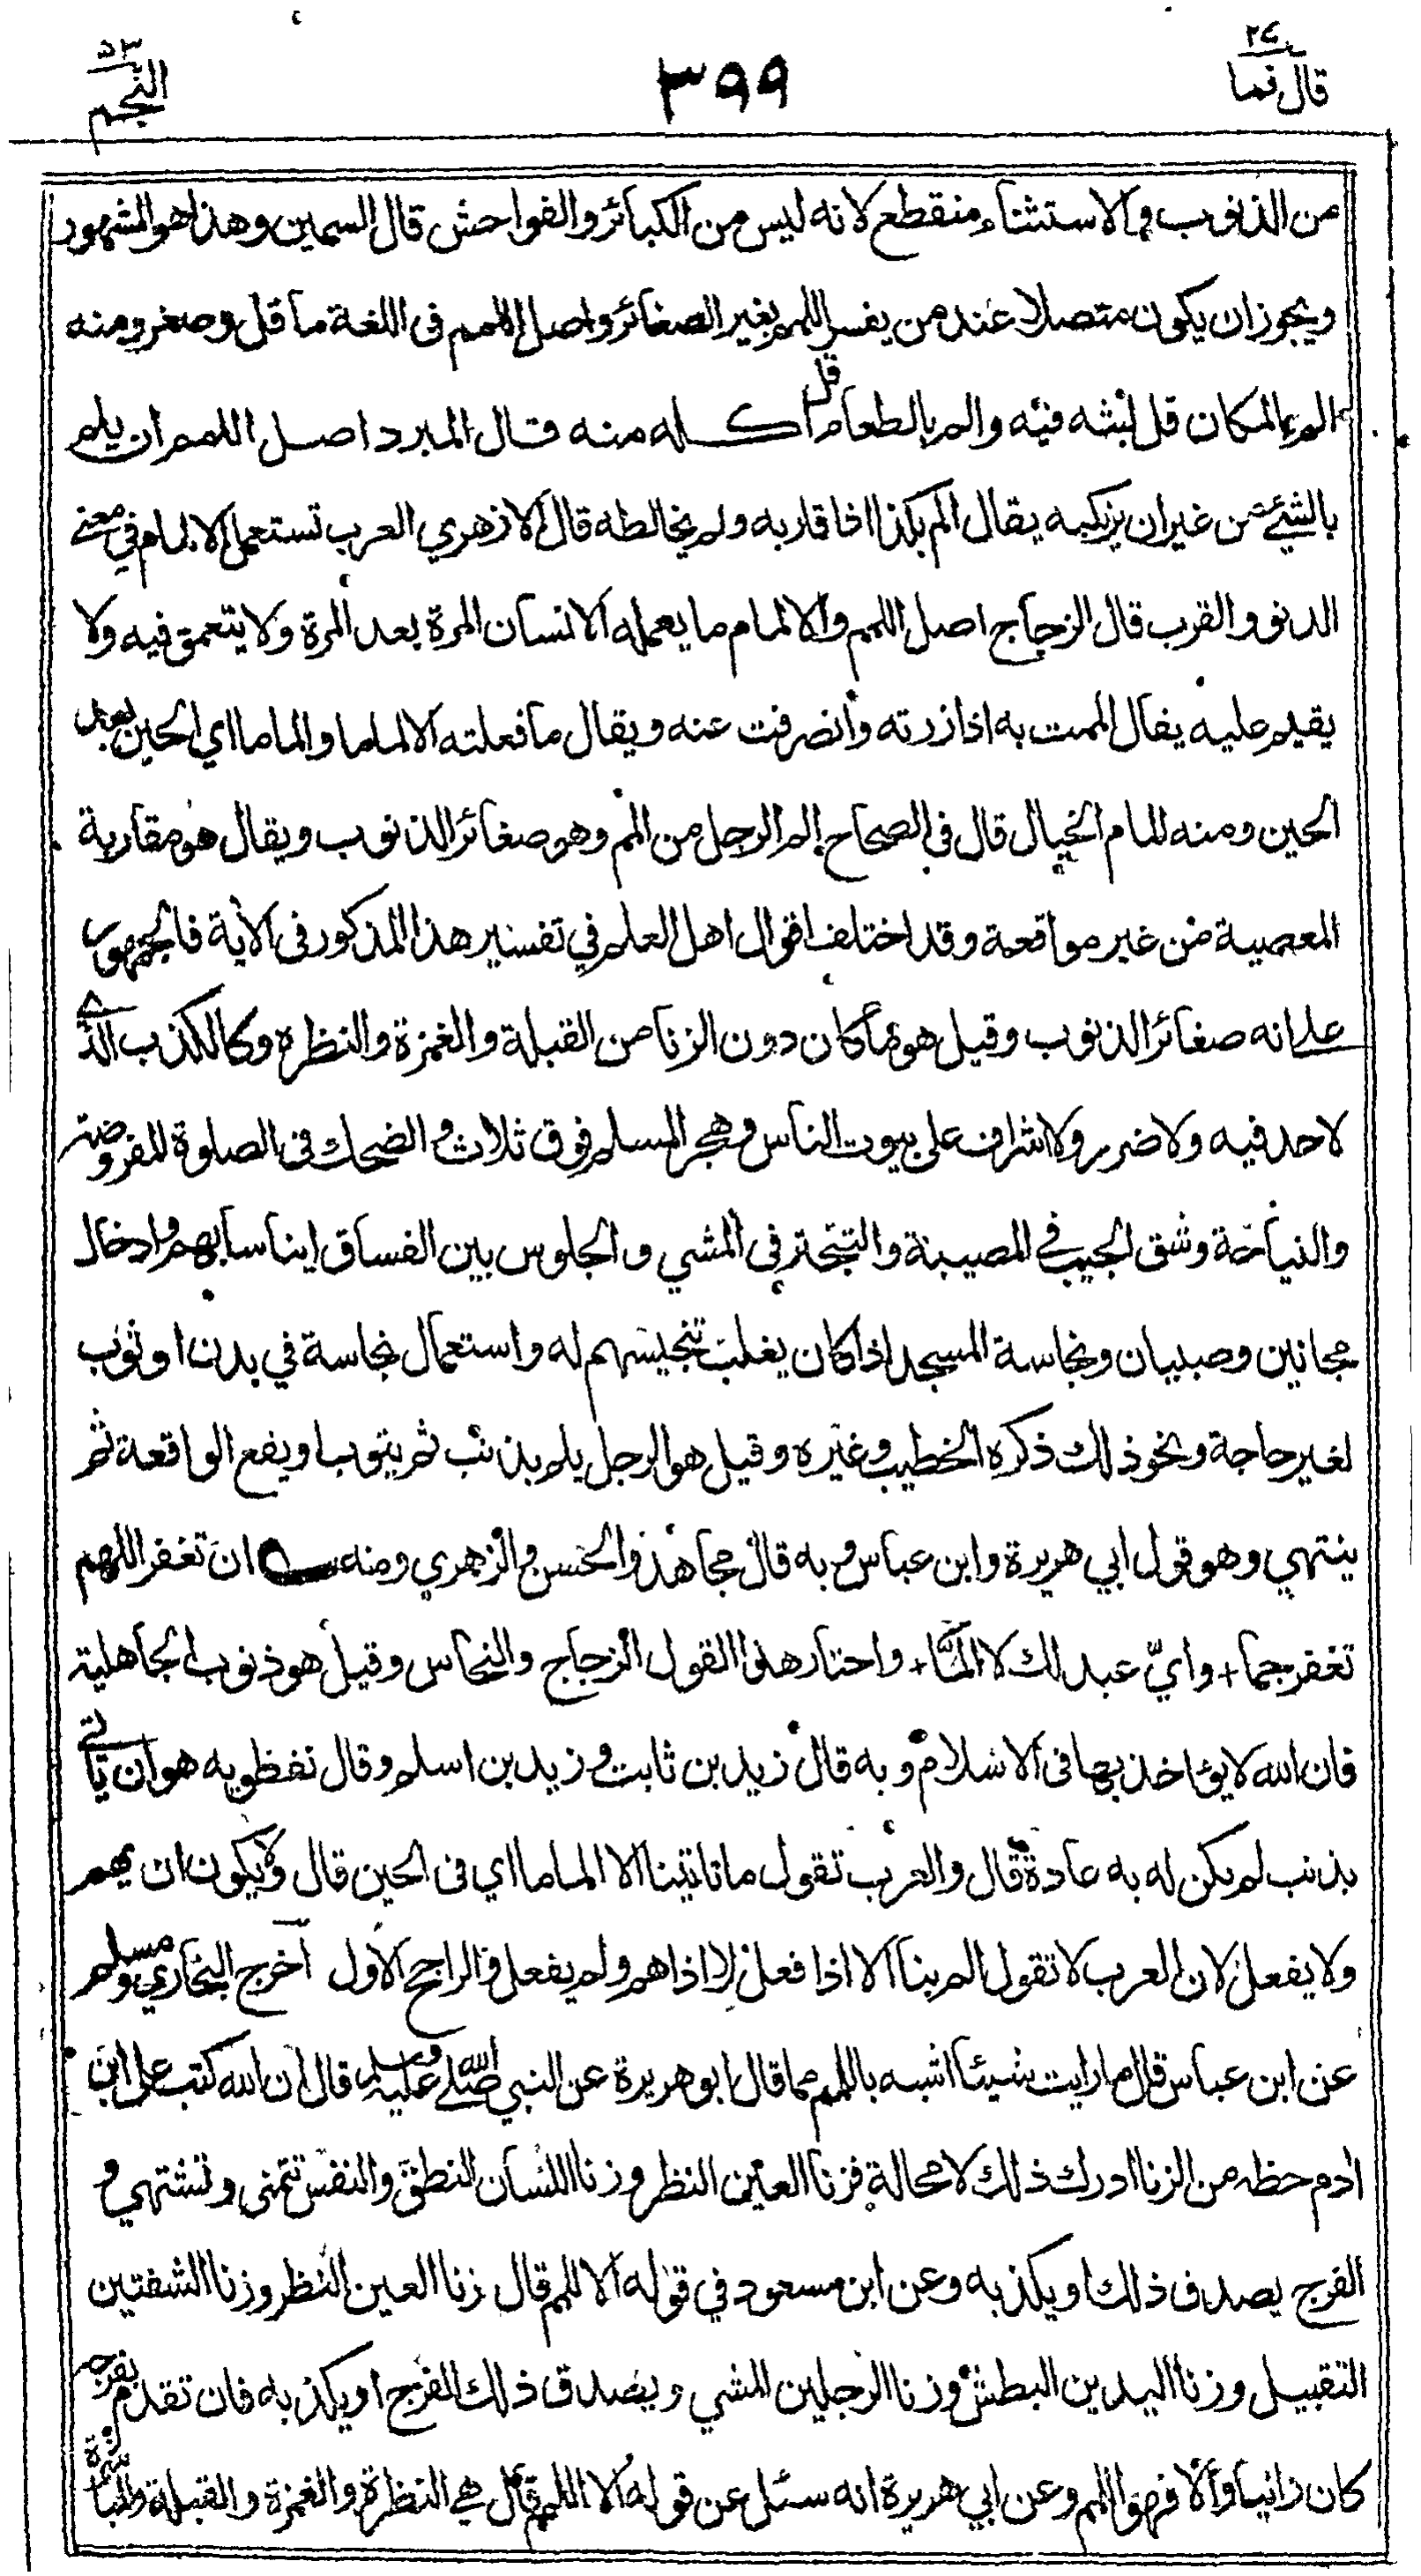 قال فما ٢٧
٣٩٩
النجم ٥٣
من الذنوب والاستثناء منقطع لانه ليس من الكبائر والفواحش قال السمين وهذا هو المشهور
ويجوز ان يكون متصلا عند من يفسر اللمم بغير الصغائر واصل اللمم فى اللغة ما قل وصغر ومنه
الم بالمكان قل لبثه فيه والم بالطعام قل اكله منه قال المبرد اصل اللمم ان يلم
بالشيئ من غير ان يركبه يقال الم بكذا اذا قاربه ولم يخالطه قال الازهري العرب تستعمل الالمام في معنى
الدنو والقرب قال الزجاج اصل اللمم والالمام ما يعمله الانسان المرة بعد المرة ولا يتعمق فيه ولا
يقيم عليه يقال الممت به اذا زرته وانصرفت عنه ويقال ما فعلته الا لماما والماما اي الحين بعد
الحين ومنه لمام الخيال قال فى الصحاح الم الرجل من اللمم وهو صغائر الذنوب ويقال هو مقاربة
المعصية من غير مواقعة وقد اختلف اقوال اهل العلم في تفسير هذا المذكور فى الاية فالجمهور
على انه صغائر الذنوب وقيل هو ما كان دون الزنا من القبلة والغمزة والنظرة وكالكذب الذي
لا حد فيه ولا ضرر والاشراف على بيوت الناس وهجر المسلم فوق ثلاث والضحك فى الصلوة المفروضة
والنياحة وشق الجيب في المصيبة والتبختر فى المشي والجلوس بين الفساق ايناسا بهم وادخال
مجانين وصبيان ونجاسة المسجد اذا كان يغلب تنجيسهم له واستعمال نجاسة في بدن او ثوب
لغير حاجة ونحو ذلك ذكره الخطيب وغيره وقيل هو الرجل يلم بذنب ثم يتوب او يقع الواقعة ثم
ينتهي وهو قول ابي هريرة وابن عباس وبه قال مجاهد والحسن والزهري ومنه ان تغفر اللهم
تغفر جما + واي عبد لك لا المّا + واختار هذا القول الزجاج والنحاس وقيل هو ذنوب الجاهلية
فان الله لا يؤاخذ بها فى الاسلام وبه قال زيد بن ثابت وزيد بن اسلم وقال نفظويه هو ان ياتي
بذنب لم يكن له به عادة قال والعرب تقول ما تاتينا الا الماما اي فى الحين قال ولا يكون ان يهم
ولا يفعل لان العرب لا تقول الم بنا الا اذا فعل لا اذا هم ولم يفعل والراجح الاول اخرج البخاري ومسلم
عن ابن عباس قال ما رايت شيئا اشبه باللمم مما قال ابو هريرة عن النبي صلى الله عليه وسلم قال ان الله كتب على ابن
ادم حظه من الزنا ادرك ذلك لا محالة فزنا العين النظر وزنا اللسان النطق والنفس تتمنى وتشتهي و
الفرج يصدق ذلك او يكذبه وعن ابن مسعود في قوله الا اللمم قال زنا العين النظر وزنا الشفتين
التقبيل وزنا اليدين البطش وزنا الرجلين المشي ويصدق ذلك الفرج او يكذبه فان تقدم بفرجه
كان زانيا والا فهو اللمم وعن ابي هريرة انه سئل عن قوله الا اللمم قال هي النظرة والغمزة والقبلة والمباشرة